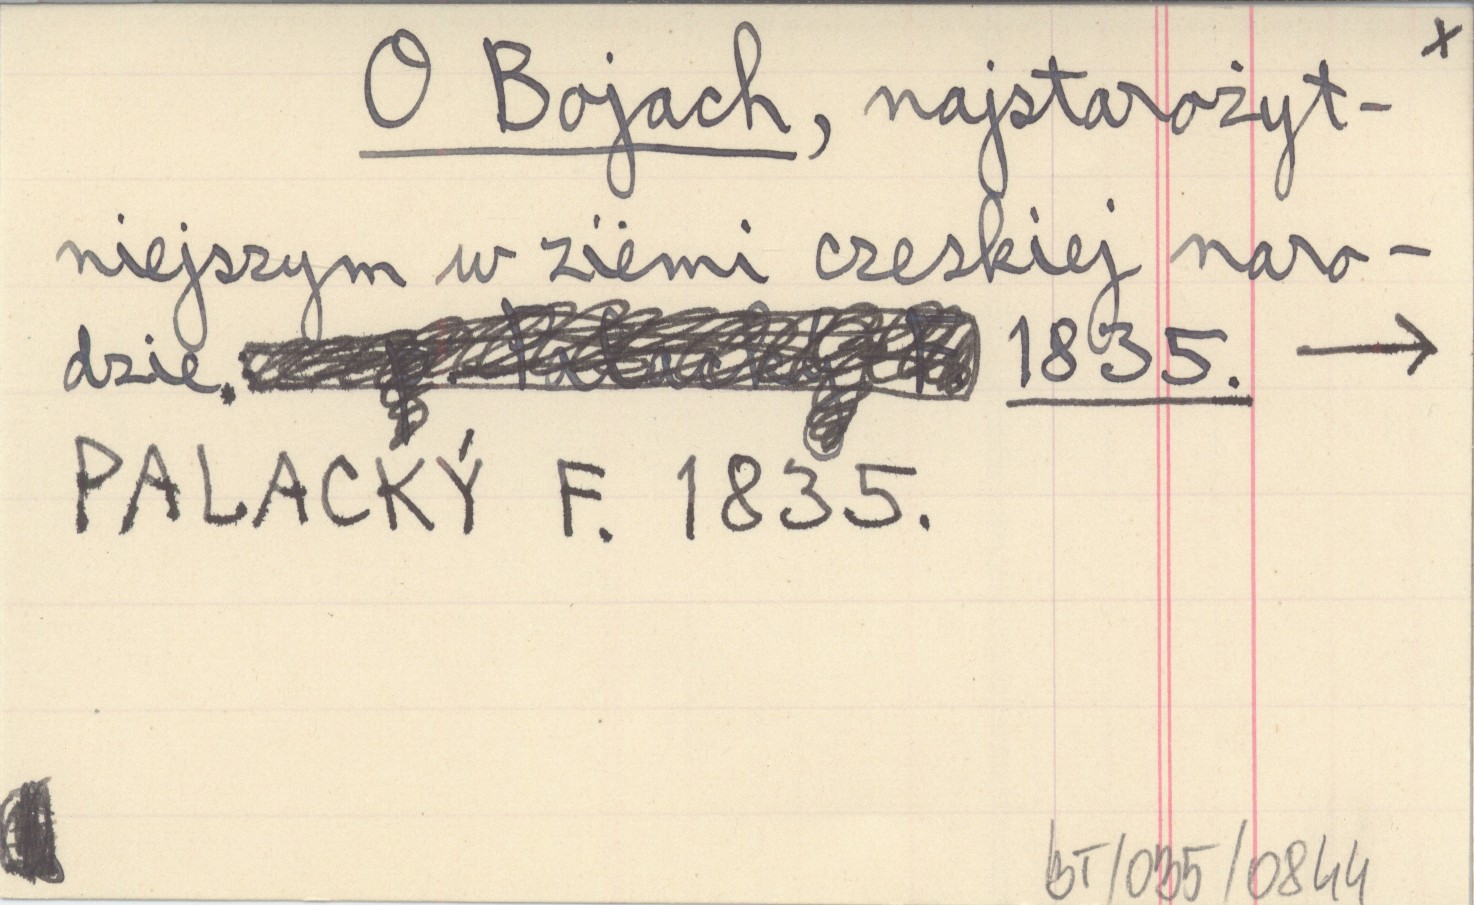 x
O Bojach, najstarożyt-
niejszym w ziemi czeskiej naro-
dzie. 1835. →
PALACKÝ F. 1835.
BT/035/0844